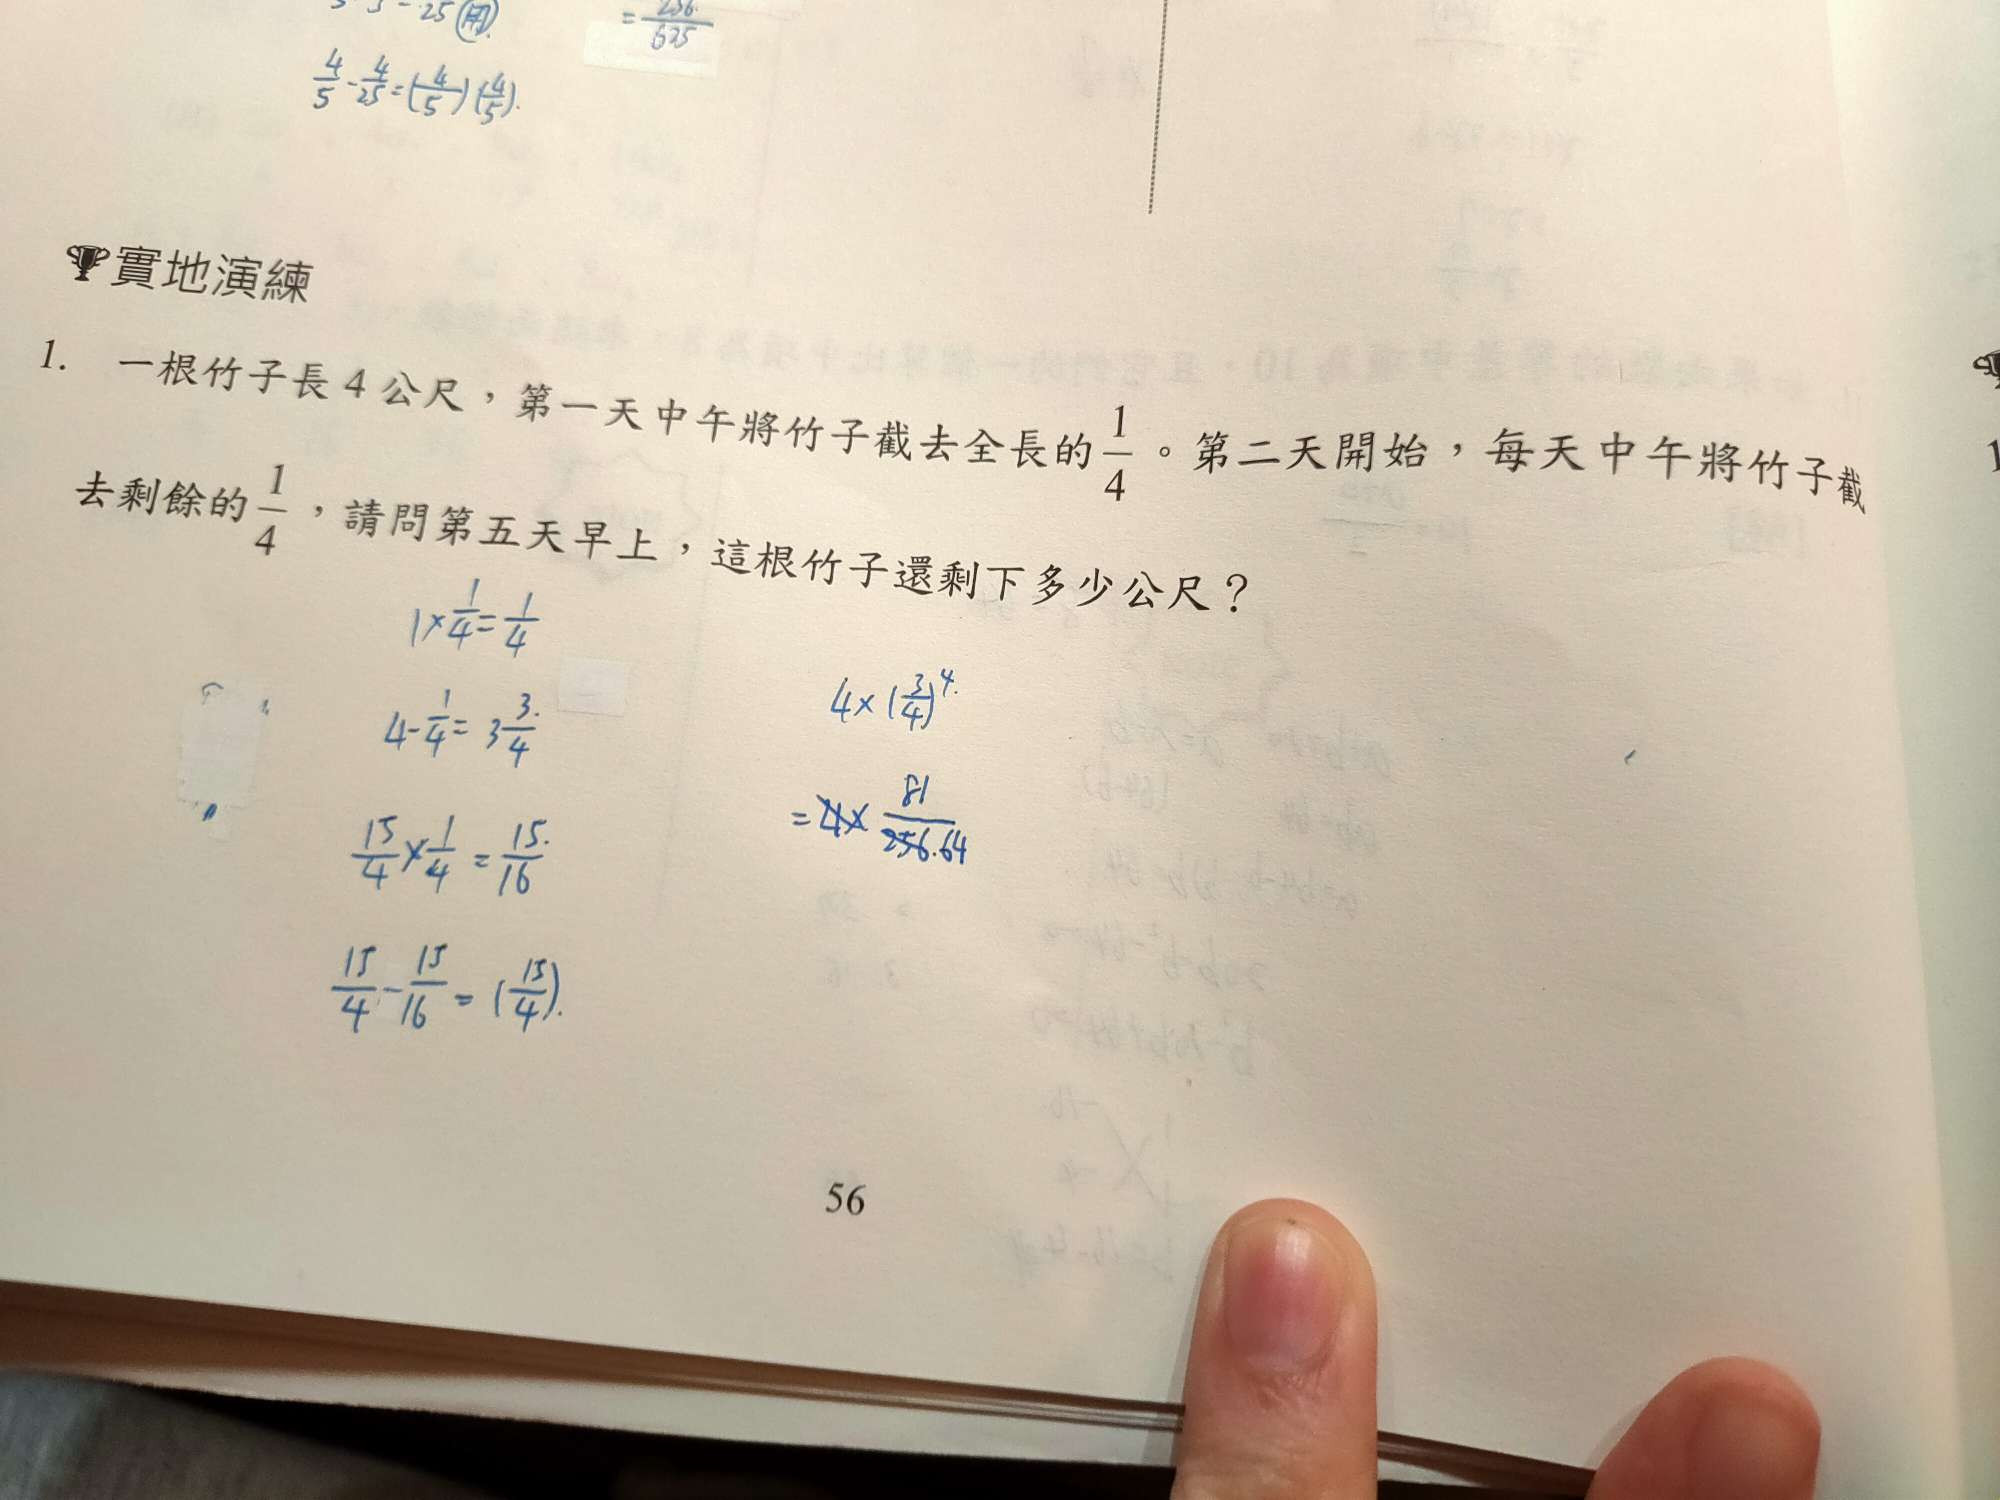 = 256/625
4/5 - 4/25 = (4/5)(4/5).
實地演練
1. 一根竹子長 4 公尺，第一天中午將竹子截去全長的 1/4 。第二天開始，每天中午將竹子截
去剩餘的 1/4 ，請問第五天早上，這根竹子還剩下多少公尺？
1×1/4=1/4
4-1/4= 3 3/4
15/4×1/4 = 15/16
15/4-15/16 = (15/4).
4×(3/4)^4
= 4× 81/256.64
56